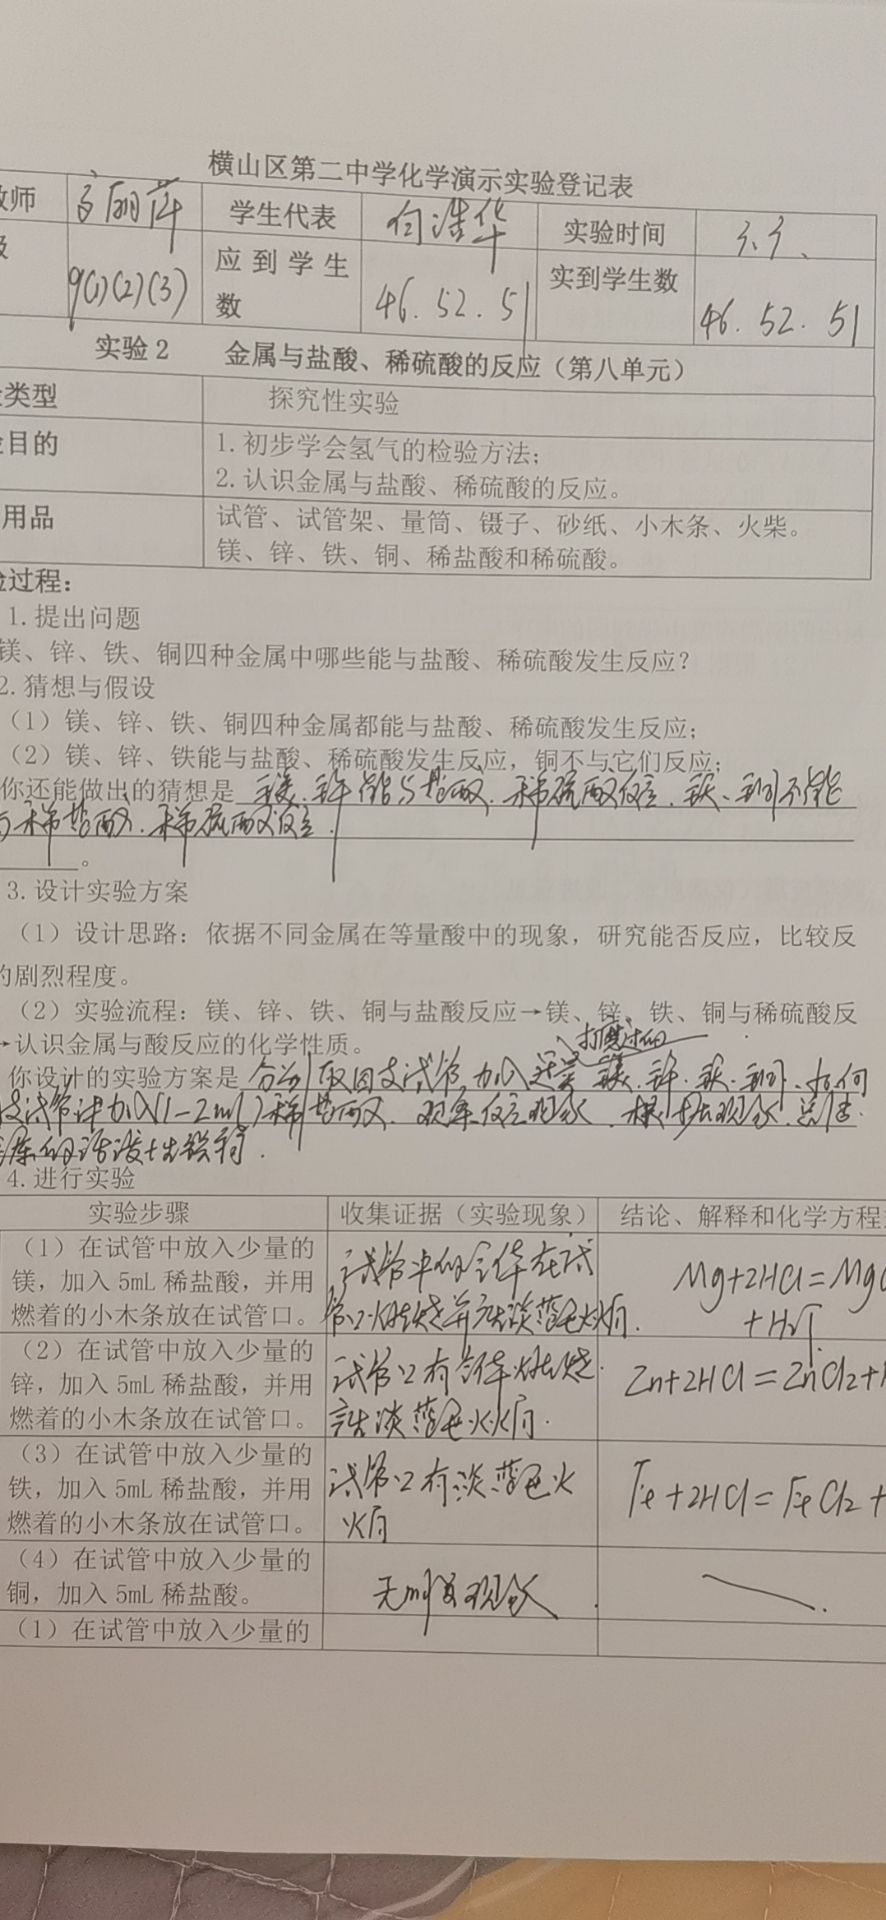 横山区第二中学化学演示实验登记表
教师 高丽萍 学生代表 白浩华 实验时间 3.3、
级 9(1)(2)(3) 应到学生数 46.52.51 实到学生数 46.52.51
实验2 金属与盐酸、稀硫酸的反应（第八单元）
类型 探究性实验
目的 1.初步学会氢气的检验方法；
2.认识金属与盐酸、稀硫酸的反应。
用品 试管、试管架、量筒、镊子、砂纸、小木条、火柴。
镁、锌、铁、铜、稀盐酸和稀硫酸。
验过程：
1.提出问题
镁、锌、铁、铜四种金属中哪些能与盐酸、稀硫酸发生反应？
2.猜想与假设
（1）镁、锌、铁、铜四种金属都能与盐酸、稀硫酸发生反应；
（2）镁、锌、铁能与盐酸、稀硫酸发生反应，铜不与它们反应；
你还能做出的猜想是 镁、锌能与盐酸、稀硫酸反应，铁、铜不能
与稀盐酸、稀硫酸反应
。
3.设计实验方案
（1）设计思路：依据不同金属在等量酸中的现象，研究能否反应，比较反
的剧烈程度。
（2）实验流程：镁、锌、铁、铜与盐酸反应→镁、锌、铁、铜与稀硫酸反
→认识金属与酸反应的化学性质。
打磨过的
你设计的实验方案是 分别取四支试管，加入适量镁、锌、铁、铜、向
支试管中加入(1-2ml)稀盐酸，观察反应现象，根据现象，总结
的活泼性
4.进行实验
实验步骤 收集证据（实验现象） 结论、解释和化学方程
（1）在试管中放入少量的
镁，加入5mL稀盐酸，并用
燃着的小木条放在试管口。
试管中的气体在试
管口燃烧并产生淡蓝色火焰.
Mg+2HCl=MgC
+H₂↑
（2）在试管中放入少量的
锌，加入5mL稀盐酸，并用
燃着的小木条放在试管口。
试管口有气体燃烧.
淡蓝色火焰.
Zn+2HCl=ZnCl₂+
（3）在试管中放入少量的
铁，加入5mL稀盐酸，并用
燃着的小木条放在试管口。
试管口有淡蓝色火
焰
Fe+2HCl=FeCl₂+
（4）在试管中放入少量的
铜，加入5mL稀盐酸。
无明显现象
（1）在试管中放入少量的